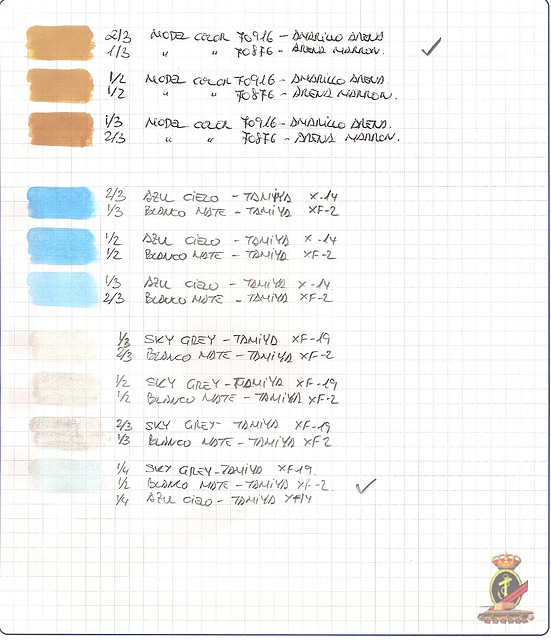 2/3 MODEL COLOR 70916 - AMARILLO ARENA
1/3 " " 70876 - ARENA MARRON.
1/2 MODEL COLOR 70916 - AMARILLO ARENA
1/2 " " 70876 - ARENA MARRON.
1/3 MODEL COLOR 70916 - AMARILLO ARENA.
2/3 " " 70876 - ARENA MARRON.
2/3 AZUL CIELO - TAMIYA X-14
1/3 BLANCO MATE - TAMIYA XF-2
1/2 AZUL CIELO - TAMIYA X-14
1/2 BLANCO MATE - TAMIYA XF-2
1/3 AZUL CIELO - TAMIYA X-14
2/3 BLANCO MATE - TAMIYA XF-2
1/3 SKY GREY - TAMIYA XF-19
2/3 BLANCO MATE - TAMIYA XF-2
1/2 SKY GREY - TAMIYA XF-19
1/2 BLANCO MATE - TAMIYA XF-2
2/3 SKY GREY - TAMIYA XF-19
1/3 BLANCO MATE - TAMIYA XF2
1/4 SKY GREY - TAMIYA XF-19
1/2 BLANCO MATE - TAMIYA XF-2
1/4 AZUL CIELO - TAMIYA